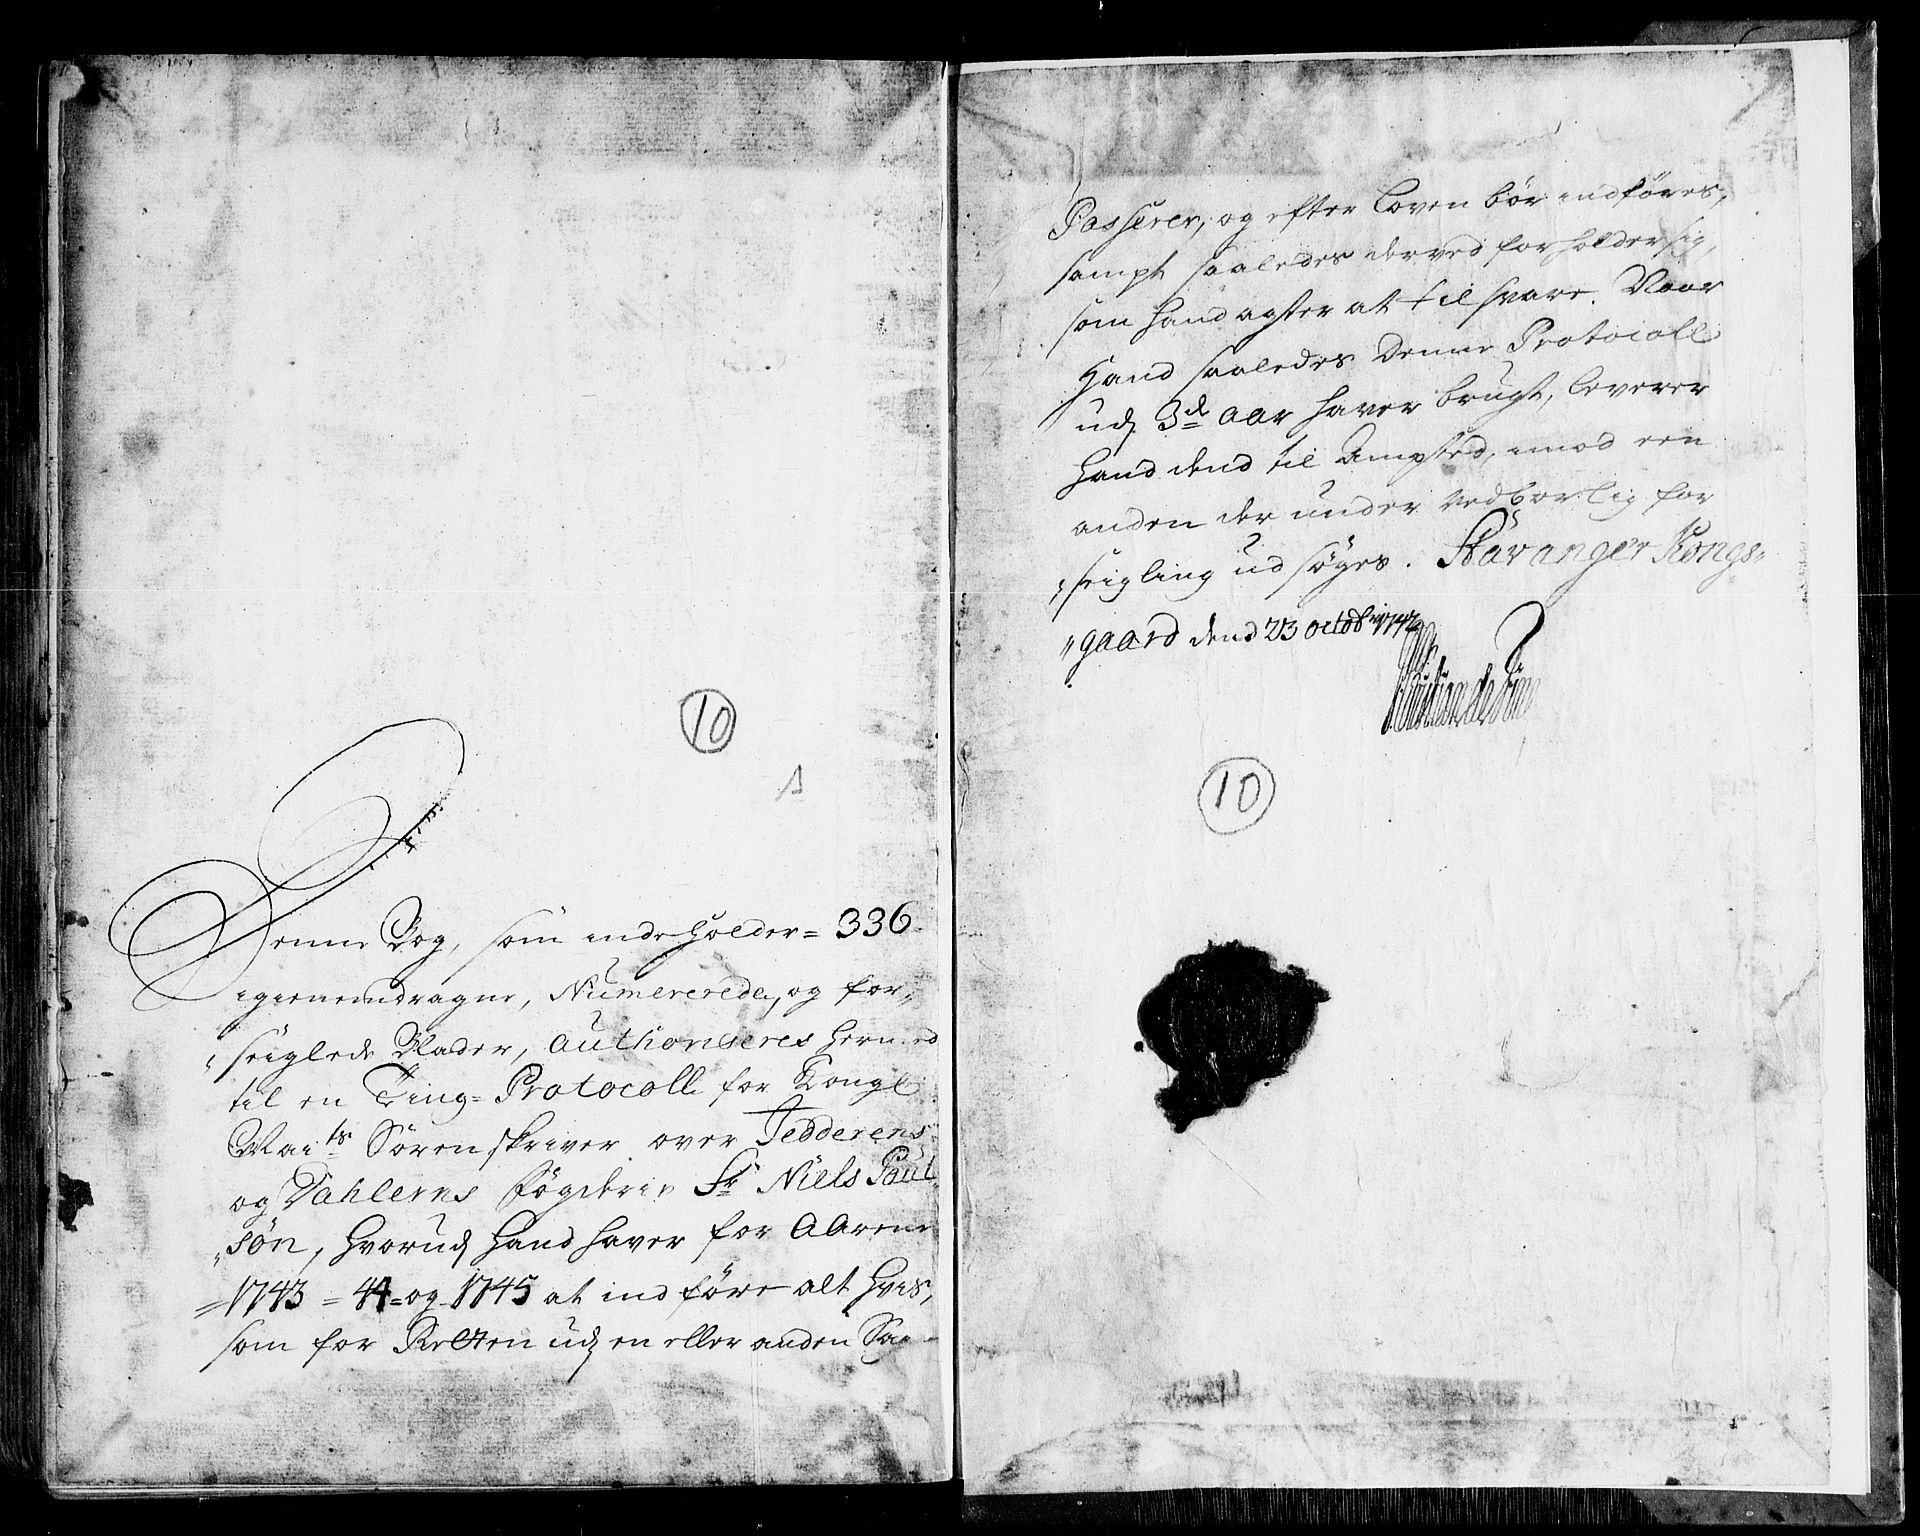 10
Denne Bog, som indeholder = 336
igiennemdragne, Numererede, og for-
seiglede Blader, Authoriseres hermed
til en Ting=Protocoll for Kongl
Mai:ts Sörenskriver over Jedderens
og Dahlerns fögderie Sr Niels Paul-
sön, hvorudj Hand haver for Aarene
1743 = 44 = og 1745 at indföre alt hvis,
som for Retten udj en eller anden Sag
Passerer, og efter Loven bör indföres,
sampt saaledes derved forholder sig,
som hand agter at tilsvare. Naar
Hand saaledes Denne Protocoll
udj 3de Aar haver brugt, leverer
hand dend til Ampted, imod een
anden der under vedborlig for
seigling udsöges. Stavanger Kongs-
gaard dend 23 octobr 1742
10